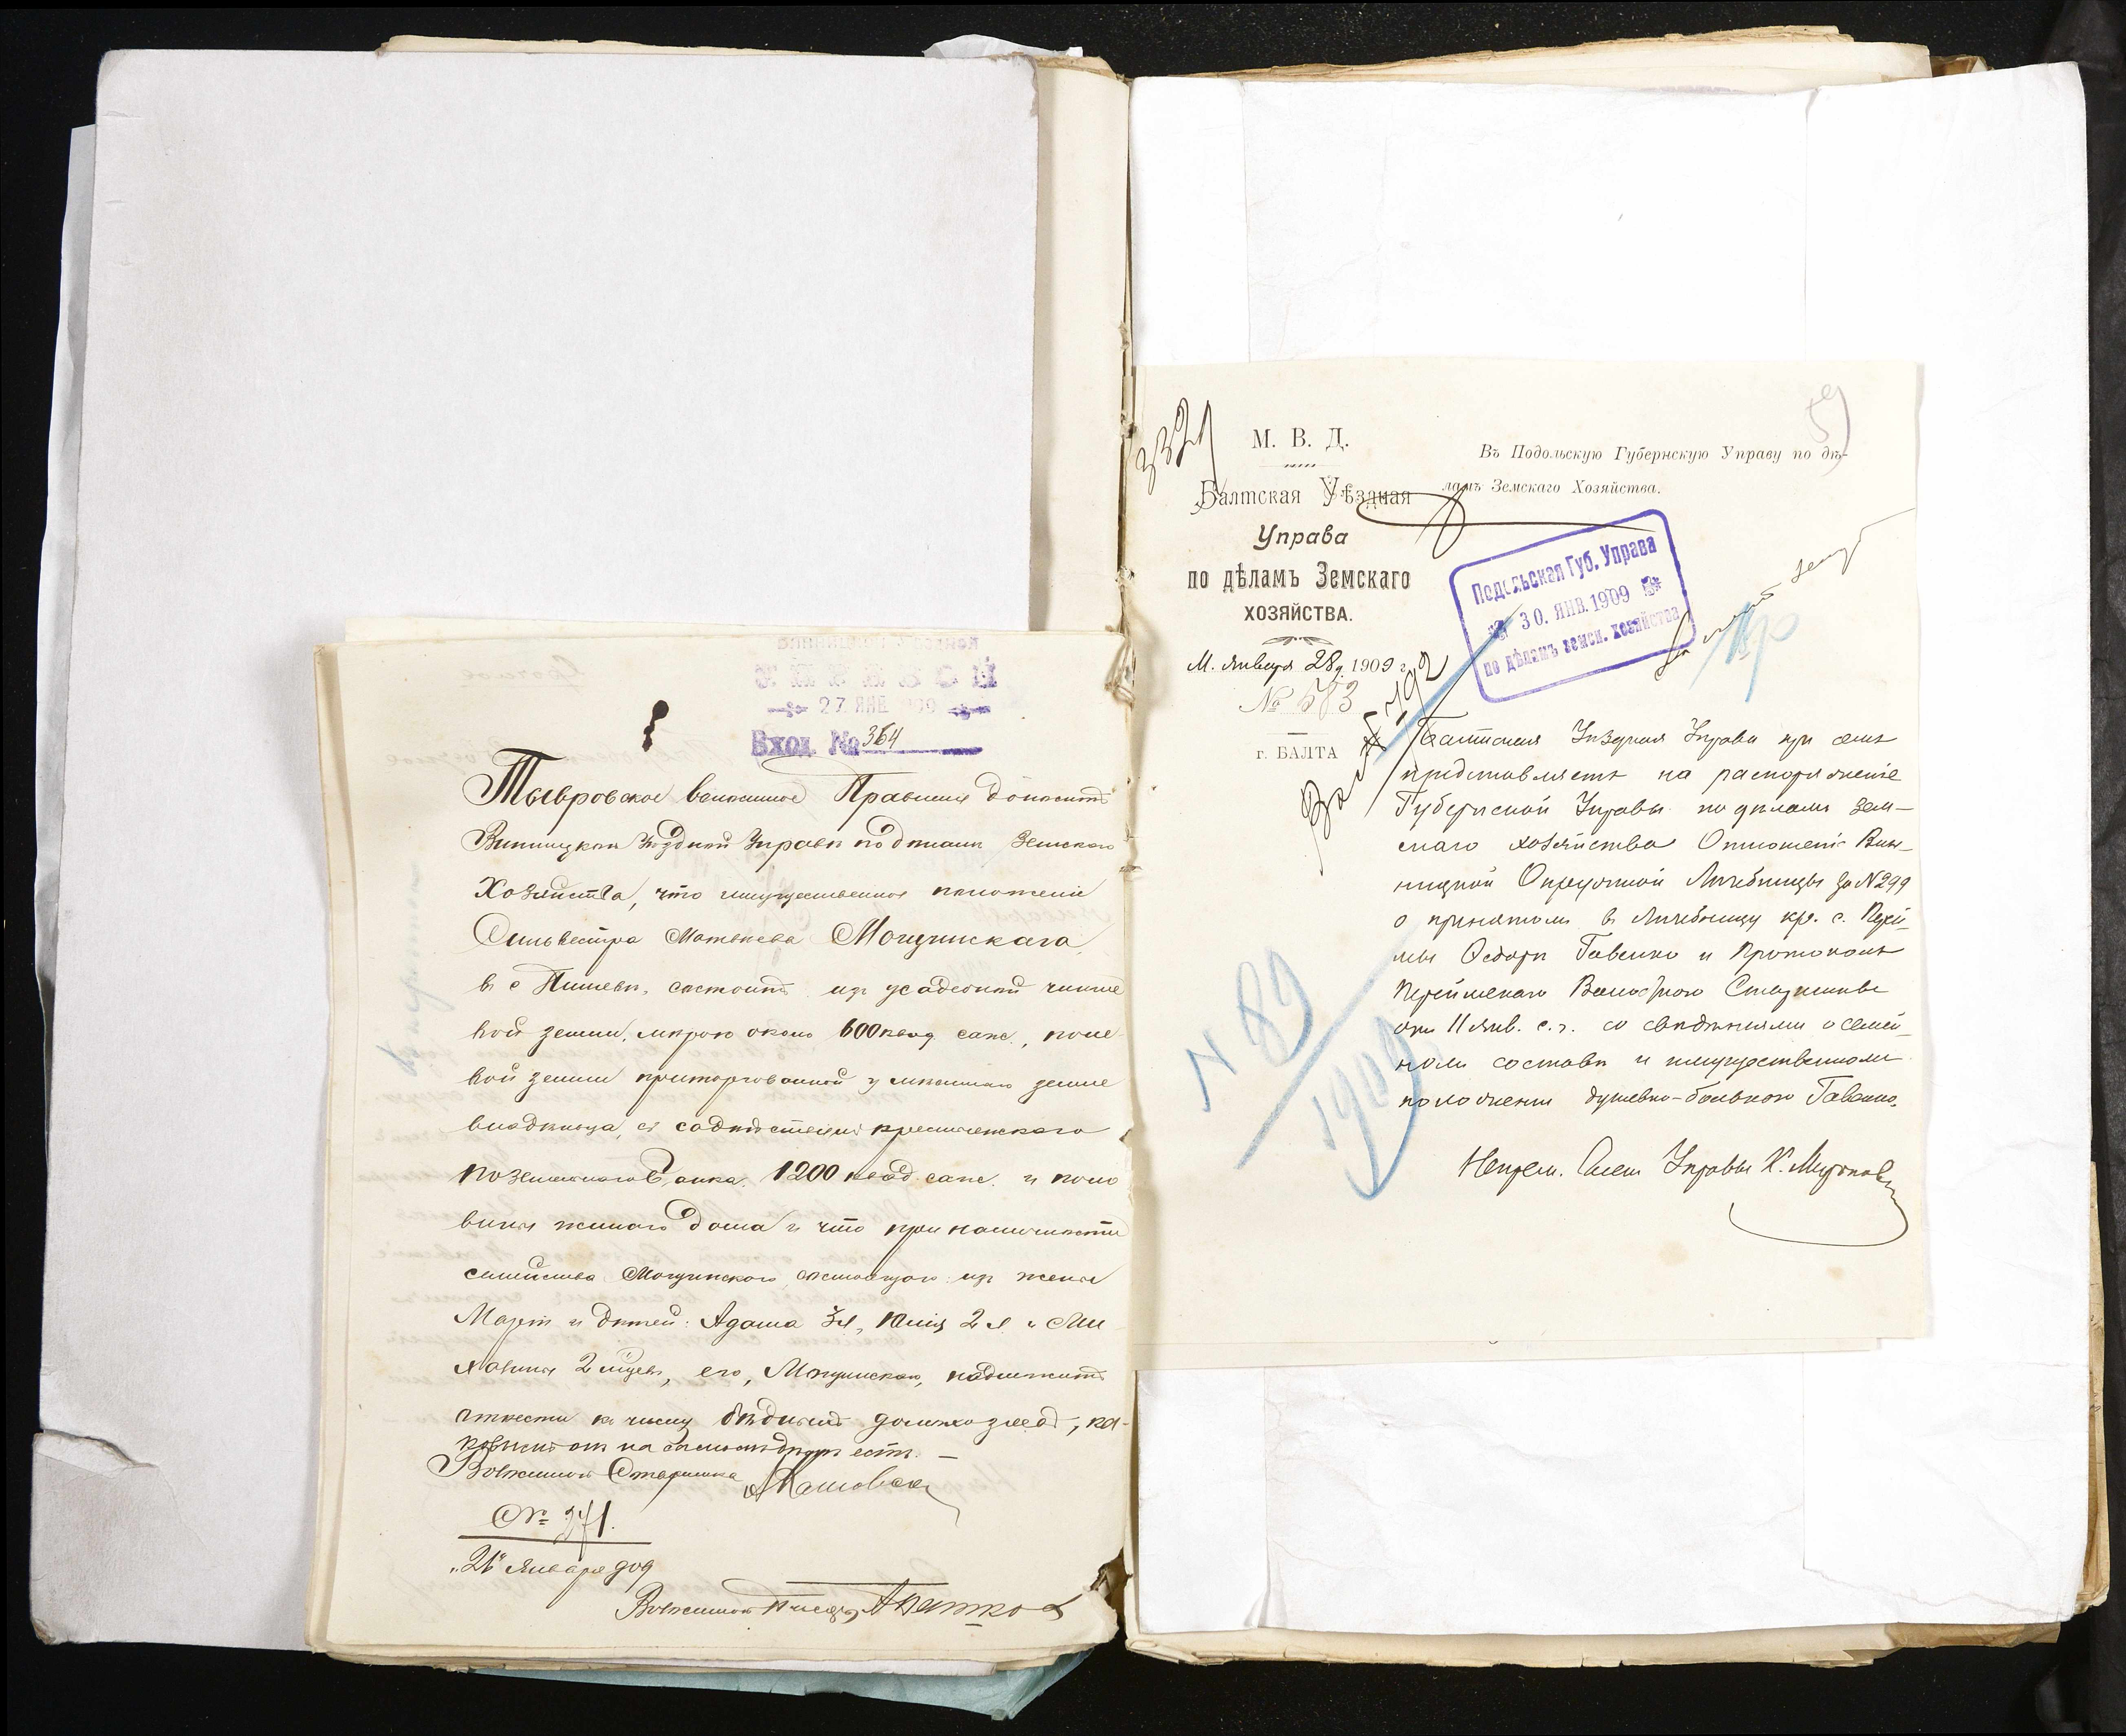 27 ЯНВ
Вход. № 364
Тывровское волостное Правление доноситъ
Винницкой Уѣздной Управѣ по дѣламъ Земскаго
Хозяйства, что имущественное положеніе
Сильвестра Матвѣева
в с состоитъ изъ усадебной чинше
вой земли, мѣрою около 600 квад. саж., поле
вой земли приторгованной у мѣстнаго земле
владѣльца, съ содѣйствіемъ крестьянскаго
поземельнаго Банка 1200 квад. саж. и поло
вины жилаго дома и что при наличности
семейства состоящаго изъ жены
и дѣтей: Адама 3 л, 2 л и
его, надлежитъ
отнести къ числу бѣдныхъ
Волостной Старшина
№ 271.
"26" Января 909
Волостной Писарь
59
М. В. Д.
Балтская Уѣздная
Управа
по дѣламъ Земскаго
ХОЗЯЙСТВА.
М. Января 28 д. 1909 г.
№ 583
г. БАЛТА
Въ Подольскую Губернскую Управу по дѣ-
ламъ Земскаго Хозяйства.
Подольская Губ. Управа
30. ЯНВ. 1909
по дѣламъ земск. хозяйства
Балтская Уѣздная Управа при семъ
представляетъ на распоряженіе
Губернской Управы по дѣламъ Зем-
скаго хозяйства Отношеніе Вин-
ницкой Окружной Лечебницы за № 299
о принятомъ въ Лечебницу кр. с. Перей-
мы Ѳедорѣ Гавенко и протоколъ
Перейменаго Волостного Старшины
отъ 11 янв. с. г. со свѣдѣніями о семей-
номъ составѣ и имущественномъ
положеніи душевно-больного Гавенко.
Непрем. Членъ Управы
N 89
1909